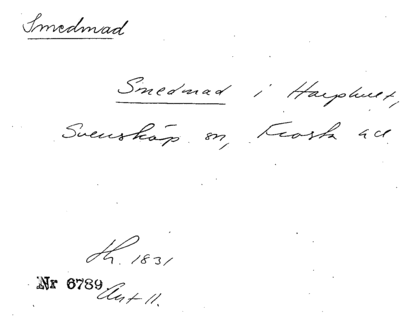 Smedmad
Smedmad i Harphult,
Svensköp sn, Frosta hd
Th. 1831
Nr 6789 Ant 11.